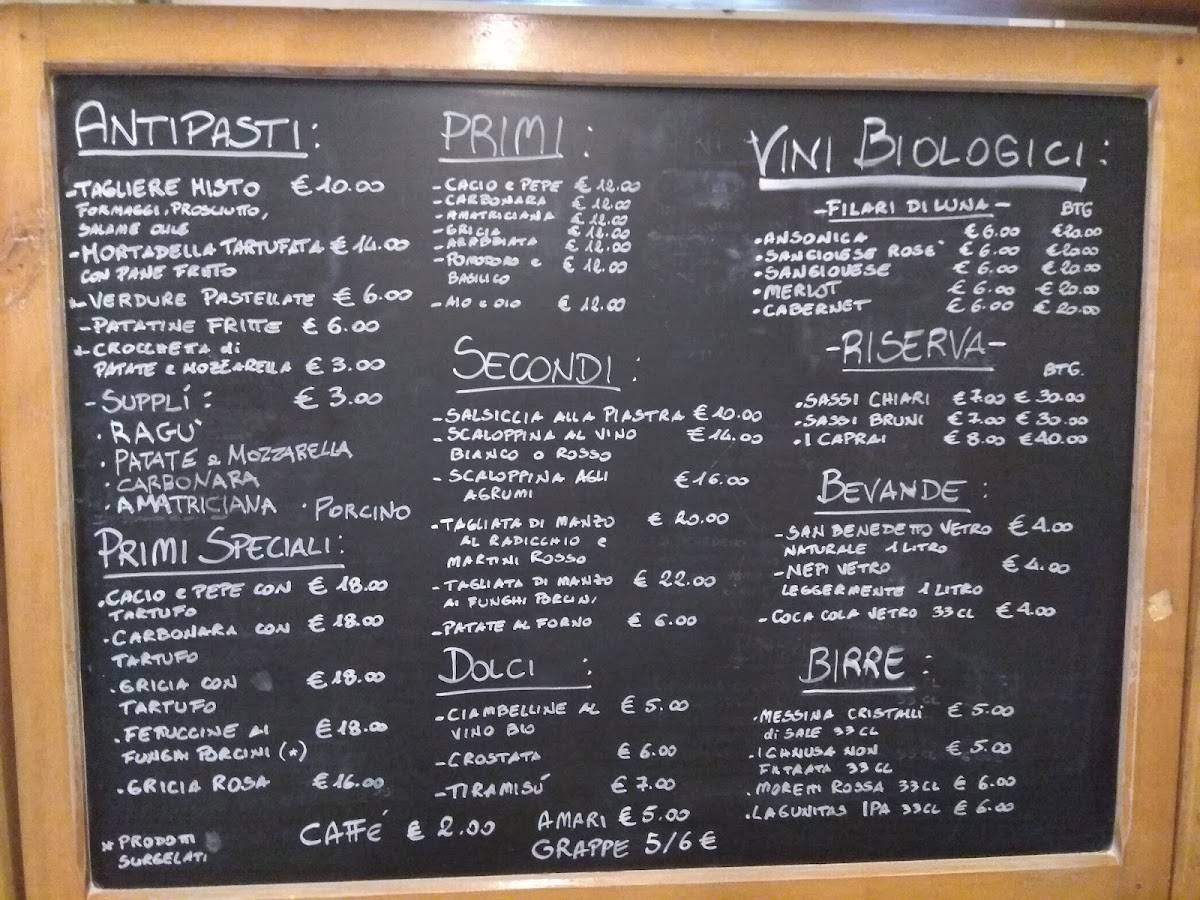 ANTIPASTI:
-TAGLIERE MISTO € 10.00
FORMAGGI, PROSCIUTTO,
SALAME
-MORTADELLA TARTUFATA € 14.00
CON PANE FRITTO
*-VERDURE PASTELLATE € 6.00
-PATATINE FRITTE € 6.00
*-CROCCHETA di
PATATE e MOZZARELLA € 3.00
-SUPPLÍ: € 3.00
·RAGU'
·PATATE e MOZZARELLA
·CARBONARA
·AMATRICIANA ·PORCINO
PRIMI SPECIALI:
·CACIO e PEPE CON € 18.00
TARTUFO
·CARBONARA CON € 18.00
TARTUFO
·GRICIA CON € 18.00
TARTUFO
·FETUCCINE AI € 18.00
FUNGHI PORCINI (*)
·GRICIA ROSA € 16.00
* PRODOTTI
SURGELATI
PRIMI:
-CACIO e PEPE € 12.00
-CARBONARA € 12.00
-AMATRICIANA € 12.00
-GRICIA € 12.00
-ARRABBIATA € 12.00
-POMODORO e € 12.00
BASILICO
-AIO e OIO € 12.00
SECONDI:
-SALSICCIA ALLA PIASTRA € 10.00
-SCALOPPINA AL VINO € 14.00
BIANCO O ROSSO
-SCALOPPINA AGLI € 16.00
AGRUMI
-TAGLIATA DI MANZO € 20.00
AL RADICCHIO e
MARTINI ROSSO
-TAGLIATA DI MANZO € 22.00
AI FUNGHI PORCINI
-PATATE AL FORNO € 6.00
DOLCI:
-CIAMBELLINE AL € 5.00
VINO BIO
-CROSTATA € 6.00
-TIRAMISÚ € 7.00
CAFFÉ € 2.00
AMARI € 5.00
GRAPPE 5/6 €
VINI BIOLOGICI:
-FILARI DI LUNA- BTG
·ANSONICA € 6.00 €20.00
·SANGIOVESE ROSE' € 6.00 €20.00
·SANGIOVESE € 6.00 €20.00
·MERLOT € 6.00 €20.00
·CABERNET € 6.00 € 20.00
-RISERVA-
BTG.
·SASSI CHIARI € 7.00 € 30.00
·SASSI BRUNI € 7.00 € 30.00
·I CAPRAI € 8.00 €40.00
BEVANDE:
-SAN BENEDETTO VETRO € 4.00
NATURALE 1 LITRO
-NEPI VETRO € 4.00
LEGGERMENTE 1 LITRO
-COCA COLA VETRO 33 CL € 4.00
BIRRE:
·MESSINA CRISTALLI € 5.00
di SALE 33 CL
·ICHNUSA NON € 5.00
FILTRATA 33 CL
·MORETTI ROSSA 33 CL € 6.00
·LAGUNITAS IPA 33 CL € 6.00